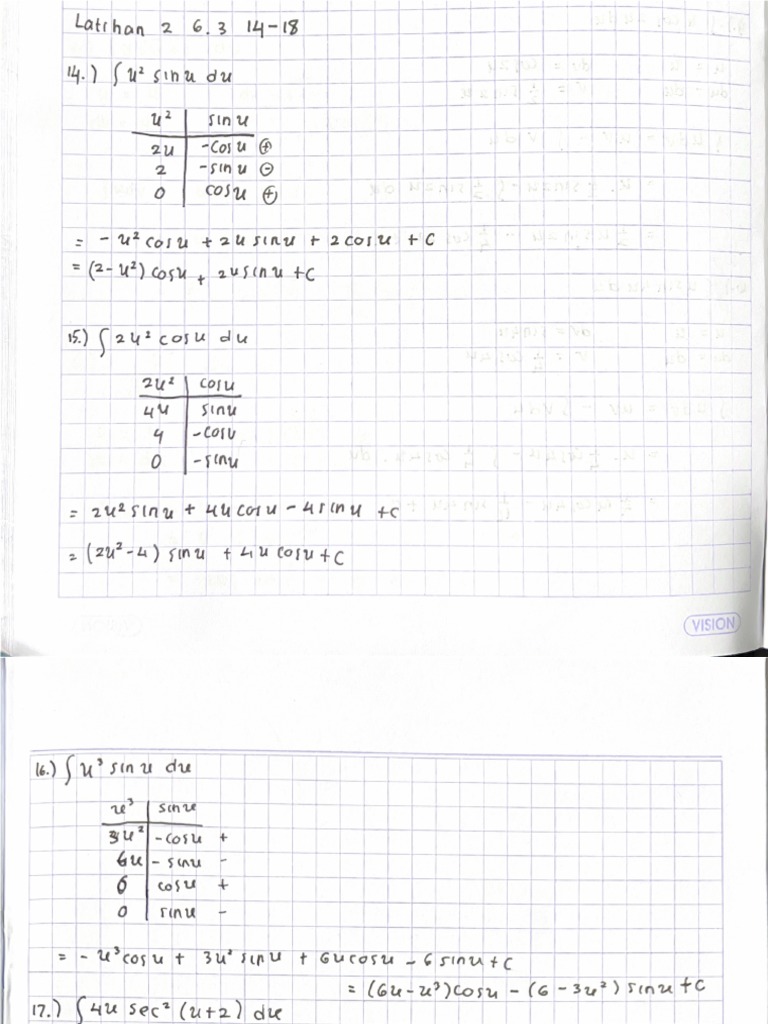 Latihan 2 6.3 14-18
14.) ∫ u² sin u du
u² | sin u
2u | -cos u ⊕
2 | -sin u ⊖
0 | cos u ⊕
= - u² cos u + 2u sin u + 2 cos u + C
= (2 - u²) cos u + 2u sin u + C
15.) ∫ 2u² cos u du
2u² | cos u
4u | sin u
4 | -cos u
0 | -sin u
= 2u² sin u + 4u cos u - 4 sin u + C
= (2u² - 4) sin u + 4u cos u + C
VISION
16.) ∫ u³ sin u du
u³ | sin u
3u² | -cos u +
6u | - sin u -
6 | cos u +
0 | sin u -
= - u³ cos u + 3u² sin u + 6u cos u - 6 sin u + C
= (6u - u³) cos u - (6 - 3u²) sin u + C
17.) ∫ 4u sec² (u+2) du